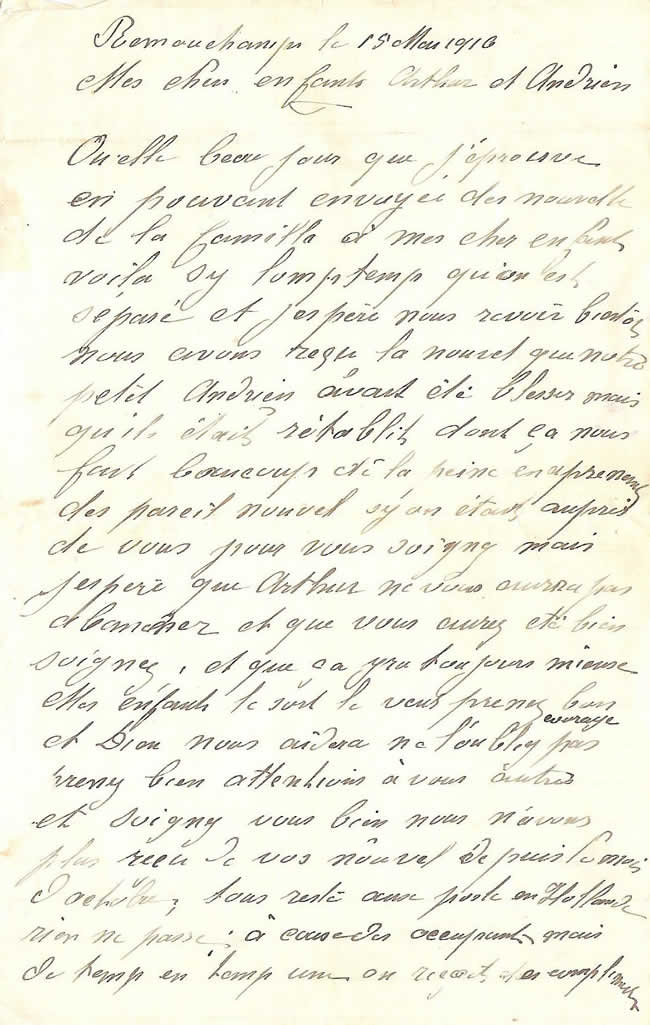 Remouchamps le 15 Mai 1916
Mes chers enfants Arthur et Andrien
Quelle beau jour que j'éprouve
en pouvant envoyéé des nouvelle
de la famille à mes cher enfants
voila sy lomptemp qu'ion est
séparé et j'espère nous revoir bientôt
nous avons reçu la nouvel que notre
petit Andrien avait été blesser mais
qu'ils était rétablit dont ça nous
fait beaucoup de la peine en aprenant
des pareil nouvel sy on était auprès
de vous pour vous soigny mais
j'espère que Arthur ne vous aurra pas
abandner et que vous aurez été bien
soigney, et que ça yra toujours mieuse
Mes enfants le sort le veut preney bon courage
et Dieu nous aidera ne l'oubley pas
preney bien attentions à vous autres
et soigny vous bien nous n'avons
plus reçu de vos nouvel depuis le mois
d'octobre, tous reste aux poste en Hollande
rien ne passe, à cause des occupant mais
de temp en temp on reçoit des compliments